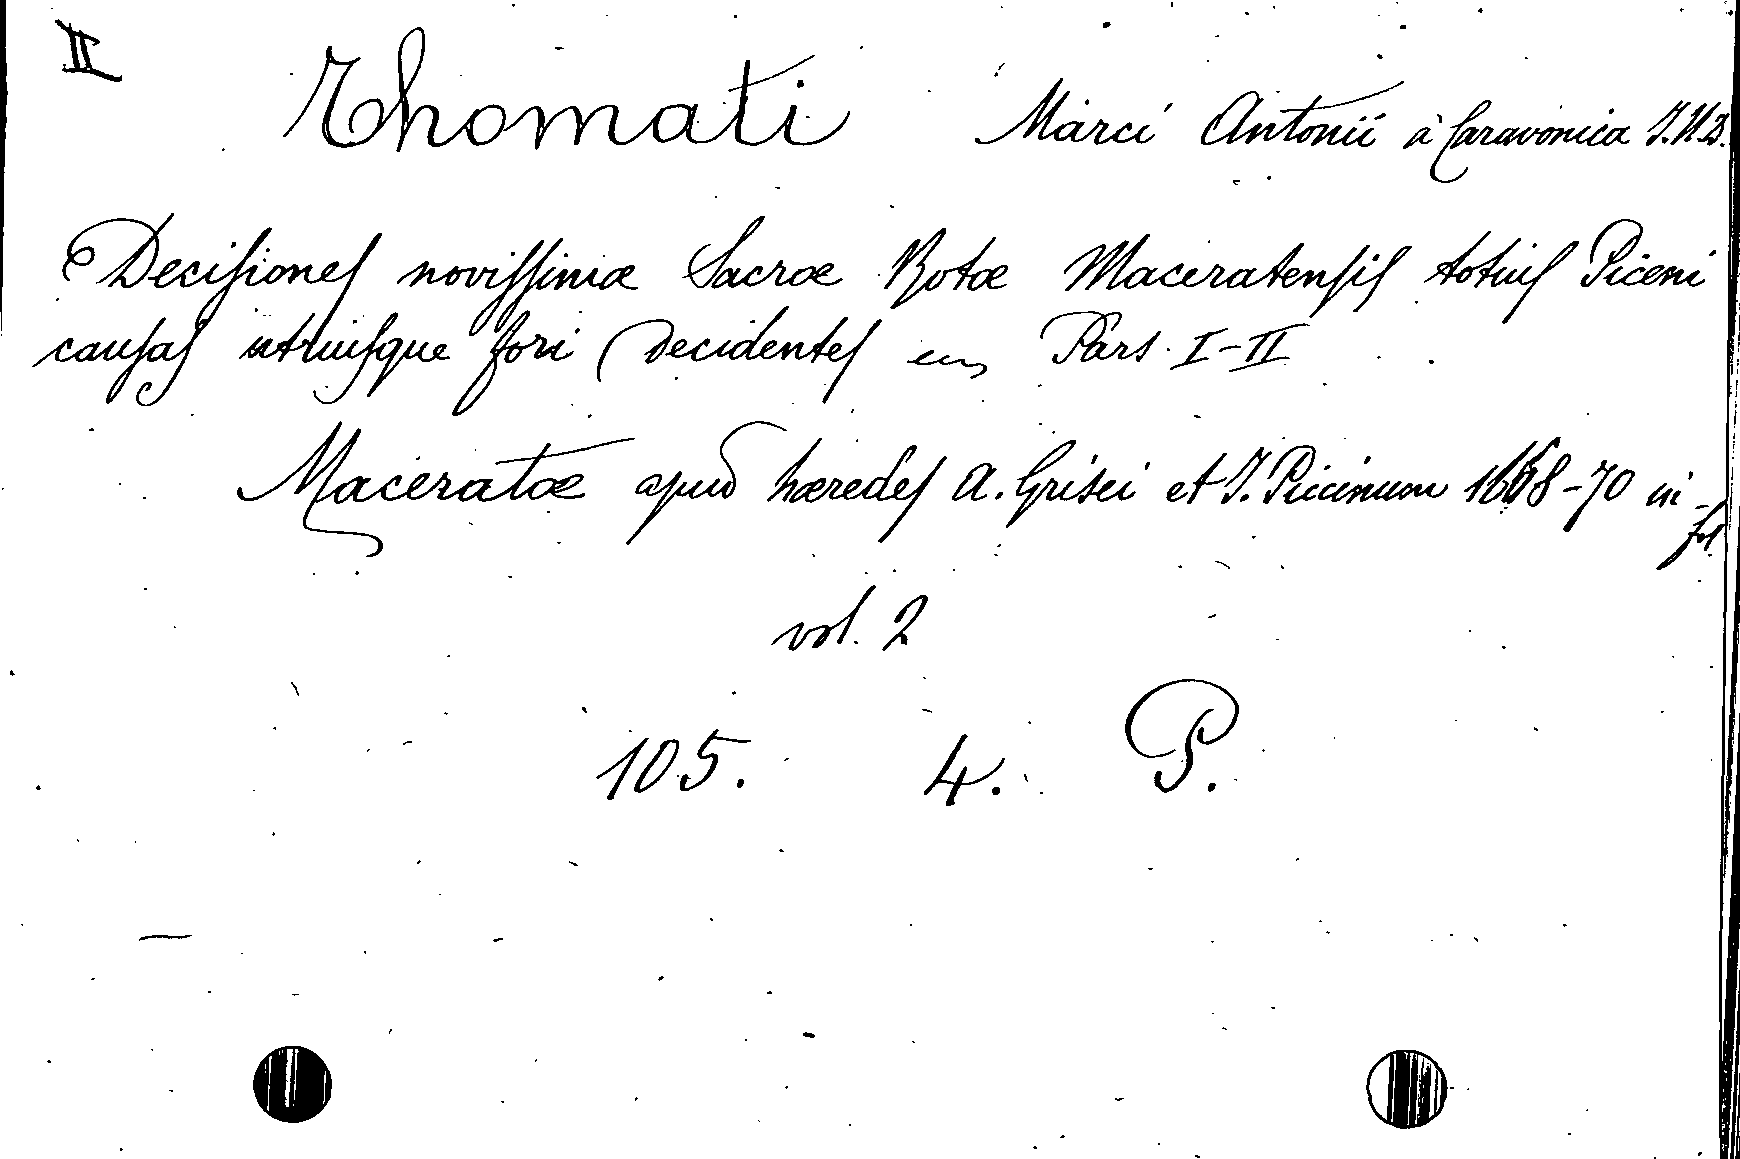 II
Thomati Marci Antonii à Caravonica J.U.D.
Decisiones novissimæ Sacræ Rotæ Maceratensis totius Piceni
causas utriusque fori decidentes Pars I-II
Maceratæ apud hæredes A. Grisei et J. Piccinum 1668-70 in-fol.
vol. 2
105. 4. P.